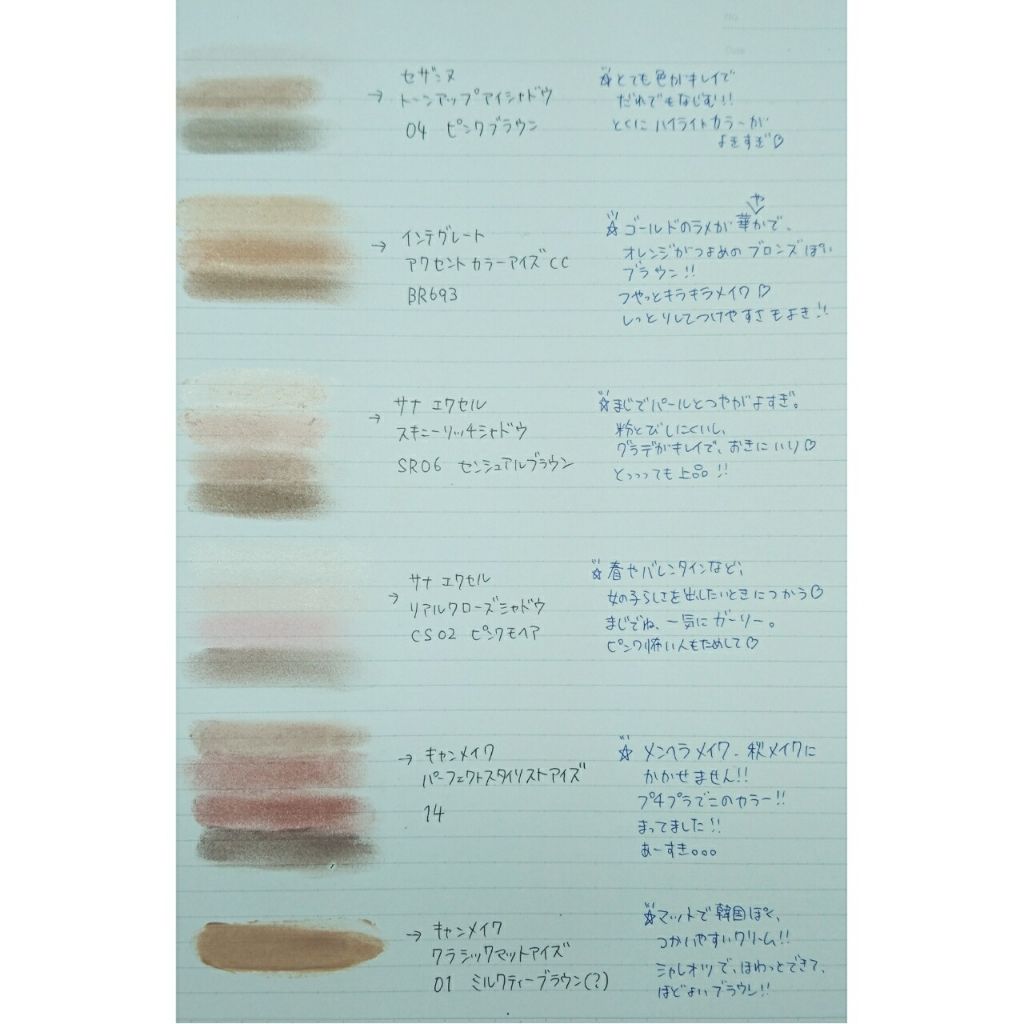 no.
Date
セザンヌ
→ トーンアップアイシャドウ
04 ピンクブラウン
☆とても色がキレイで
だれでもなじむ!!
とくにハイライトカラーが
よきすぎ♡
→ インテグレート
アクセントカラーアイズCC
BR693
や
☆ゴールドのラメが華かで、
オレンジがつよめのブロンズぽい
ブラウン!!
つやっとキラキラメイク♡
しっとりしてつけやすさもよき!!
→ サナ エクセル
スキニーリッチシャドウ
SR06 センシュアルブラウン
☆まじでパールとつやがよすぎ。
粉とびしにくいし、
グラデがキレイで、おきにいり♡
とっっっても上品!!
サナ エクセル
→ リアルクローズシャドウ
CS02 ピンクモヘア
☆春やバレンタインなど、
女の子らしさを出したいときにつかう♡
まじでね、一気にガーリー。
ピンク怖い人もためして♡
→ キャンメイク
パーフェクトスタイリストアイズ
14
☆メンヘラメイク、秋メイクに
かかせません!!
プチプラでこのカラー!!
まってました!!
あーすき。。。
→ キャンメイク
クラシックマットアイズ
01 ミルクティーブラウン(?)
☆マットで韓国ぽく、
つかいやすいクリーム!!
シャレオツで、ほわっとできて、
ほどよいブラウン!!